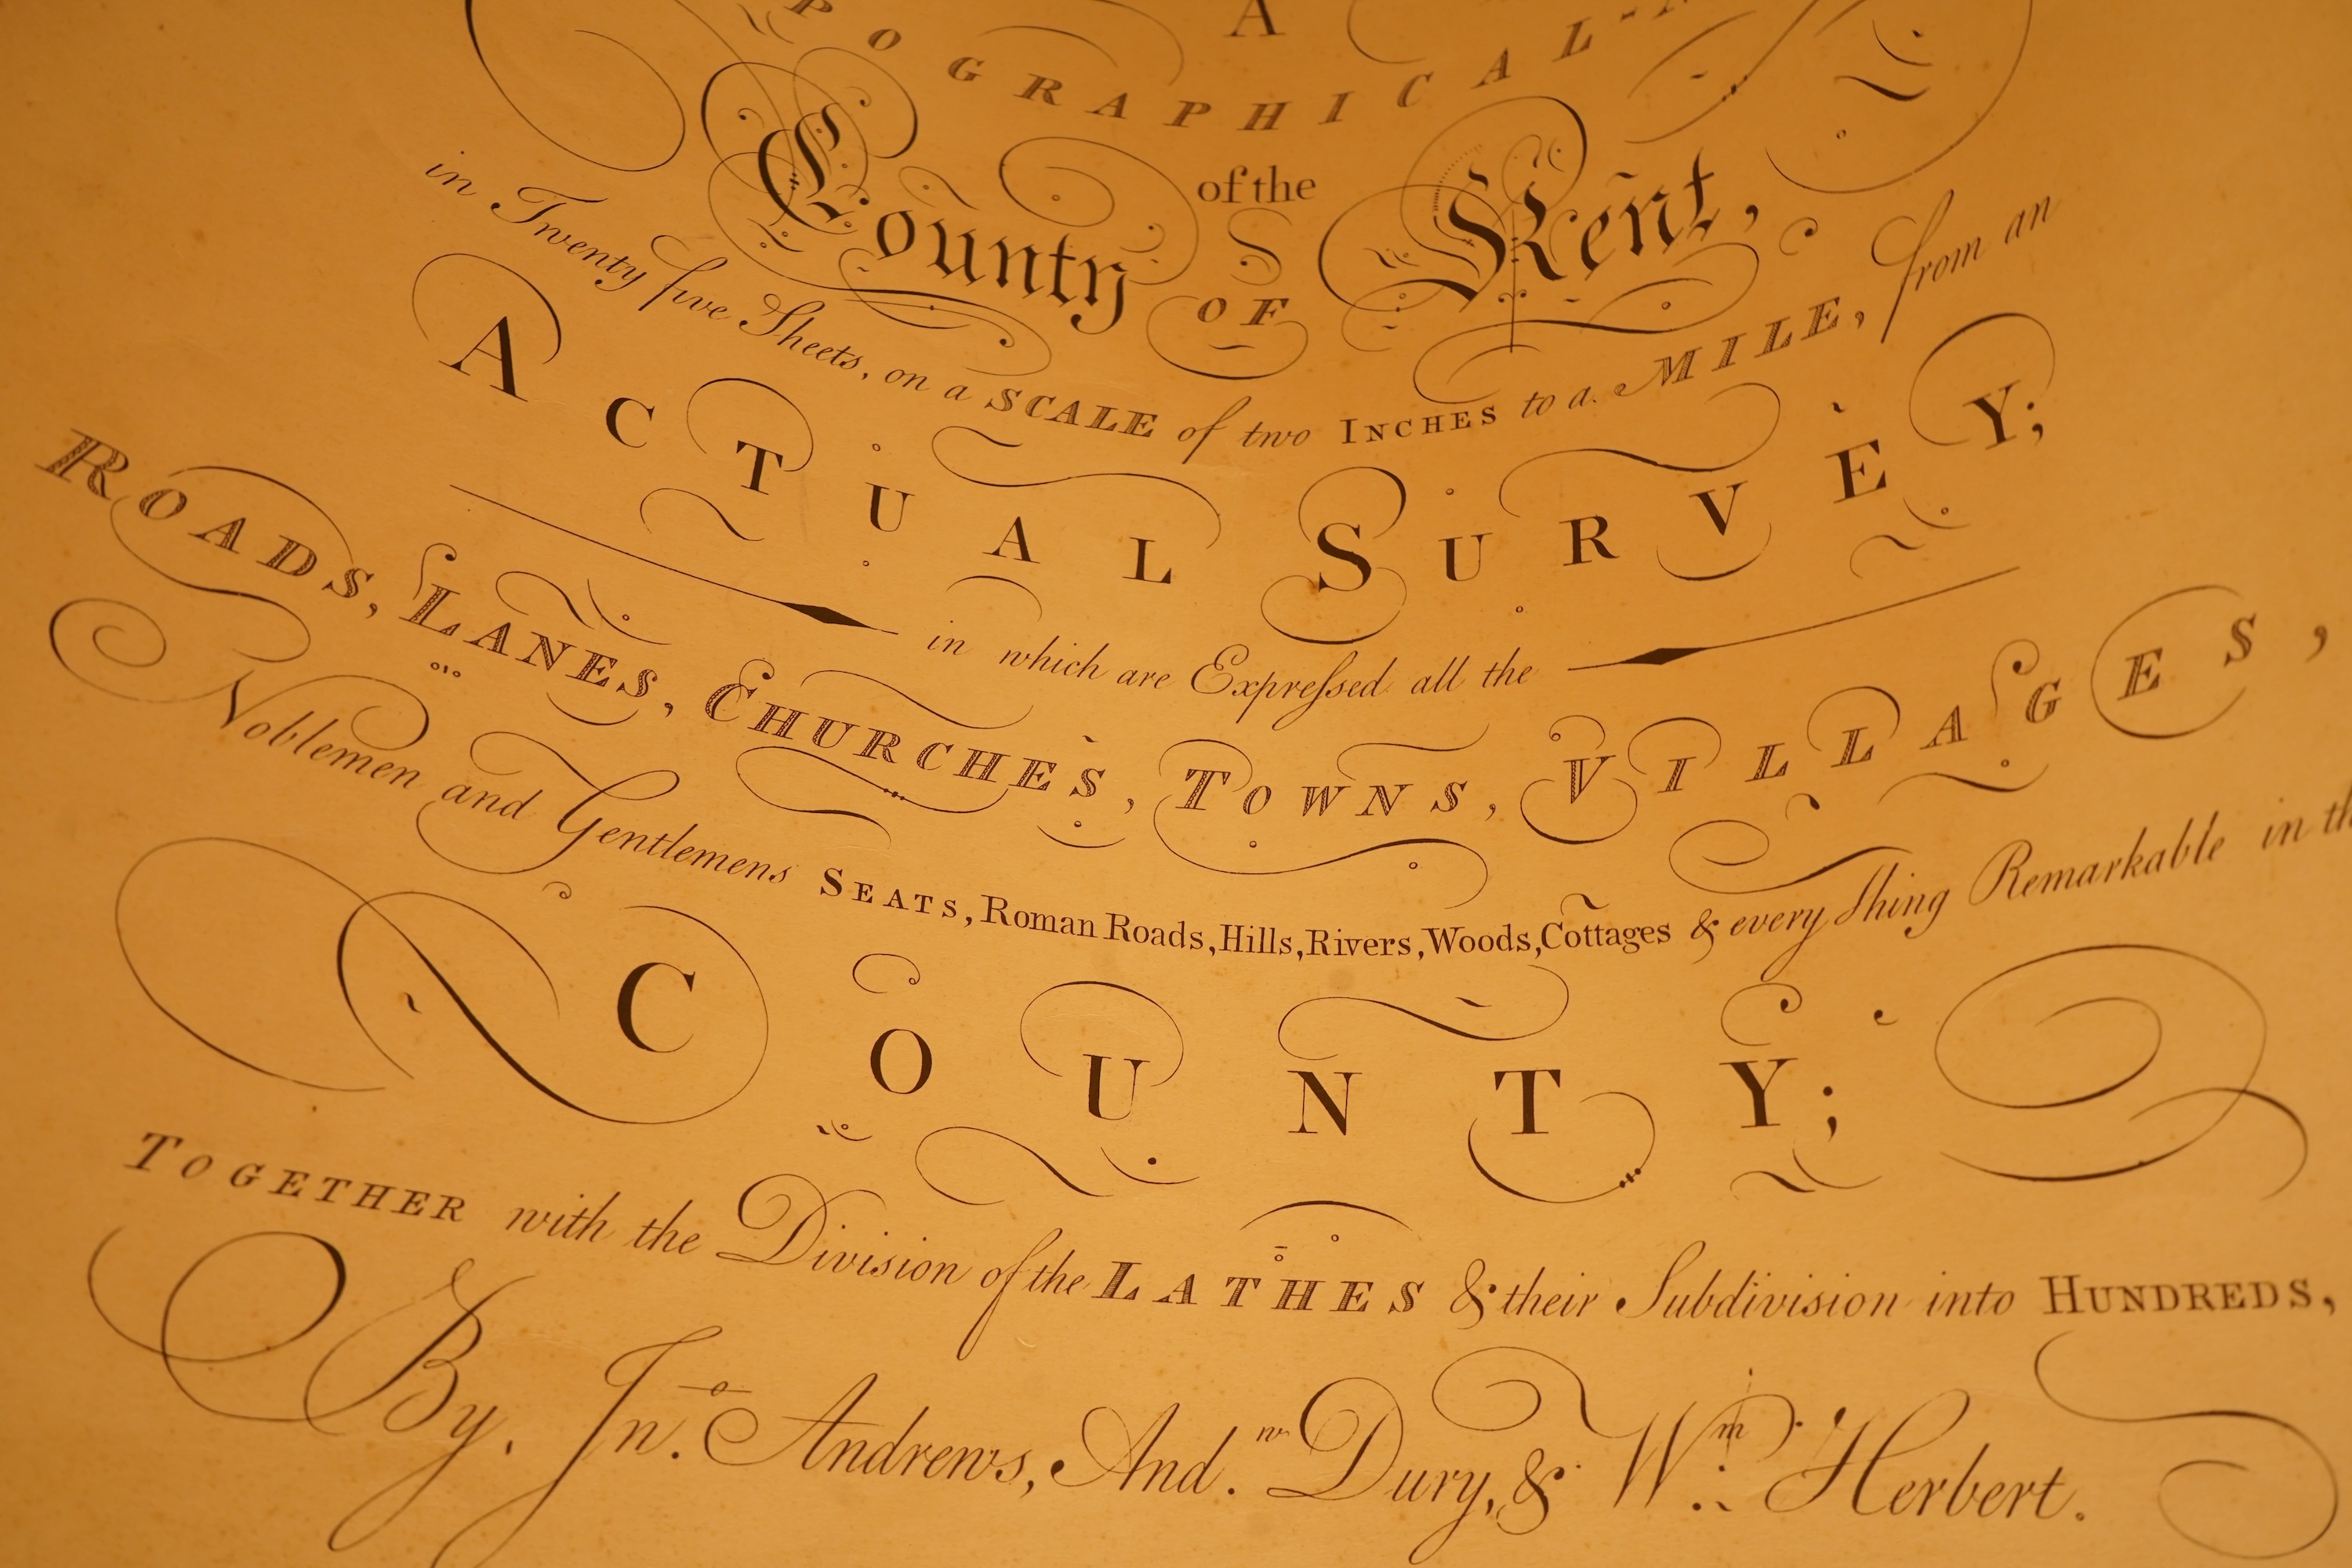 A
POGRAPHICAL
of the
County OF Kent,
in Twenty five Sheets, on a SCALE of two INCHES to a MILE, from an
ACTUAL SURVEY;
in which are Expreſsed all the
ROADS, LANES, CHURCHES, TOWNS, VILLAGES,
Noblemen and Gentlemens SEATS, Roman Roads, Hills, Rivers, Woods, Cottages & every thing Remarkable in th
COUNTY;
TOGETHER with the Division of the LATHES & their Subdivision into HUNDREDS,
By Jnº. Andrews, And.ʷ Dury, & Wᵐ. Herbert.